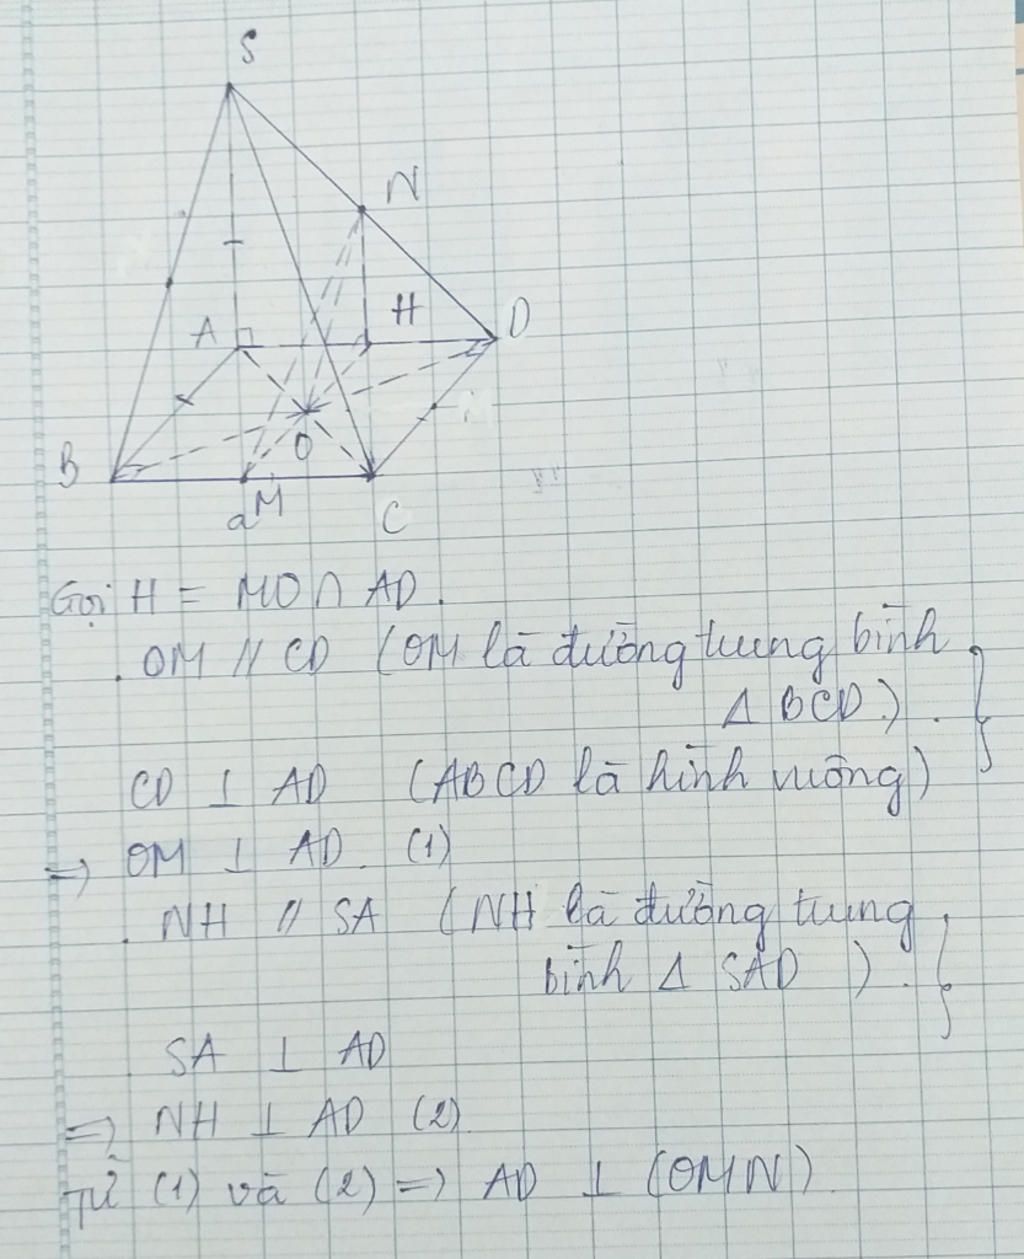 S
N
A
H
D
B
O
M
a
C
Gọi H = MO ∩ AD.
. OM // CD (OM là đường trung bình
Δ BCD).
CD ⊥ AD (ABCD là hình vuông)
=> OM ⊥ AD. (1)
. NH // SA (NH là đường trung
bình Δ SAD ).
SA ⊥ AD
=> NH ⊥ AD (2)
Từ (1) và (2) => AD ⊥ (OMN)